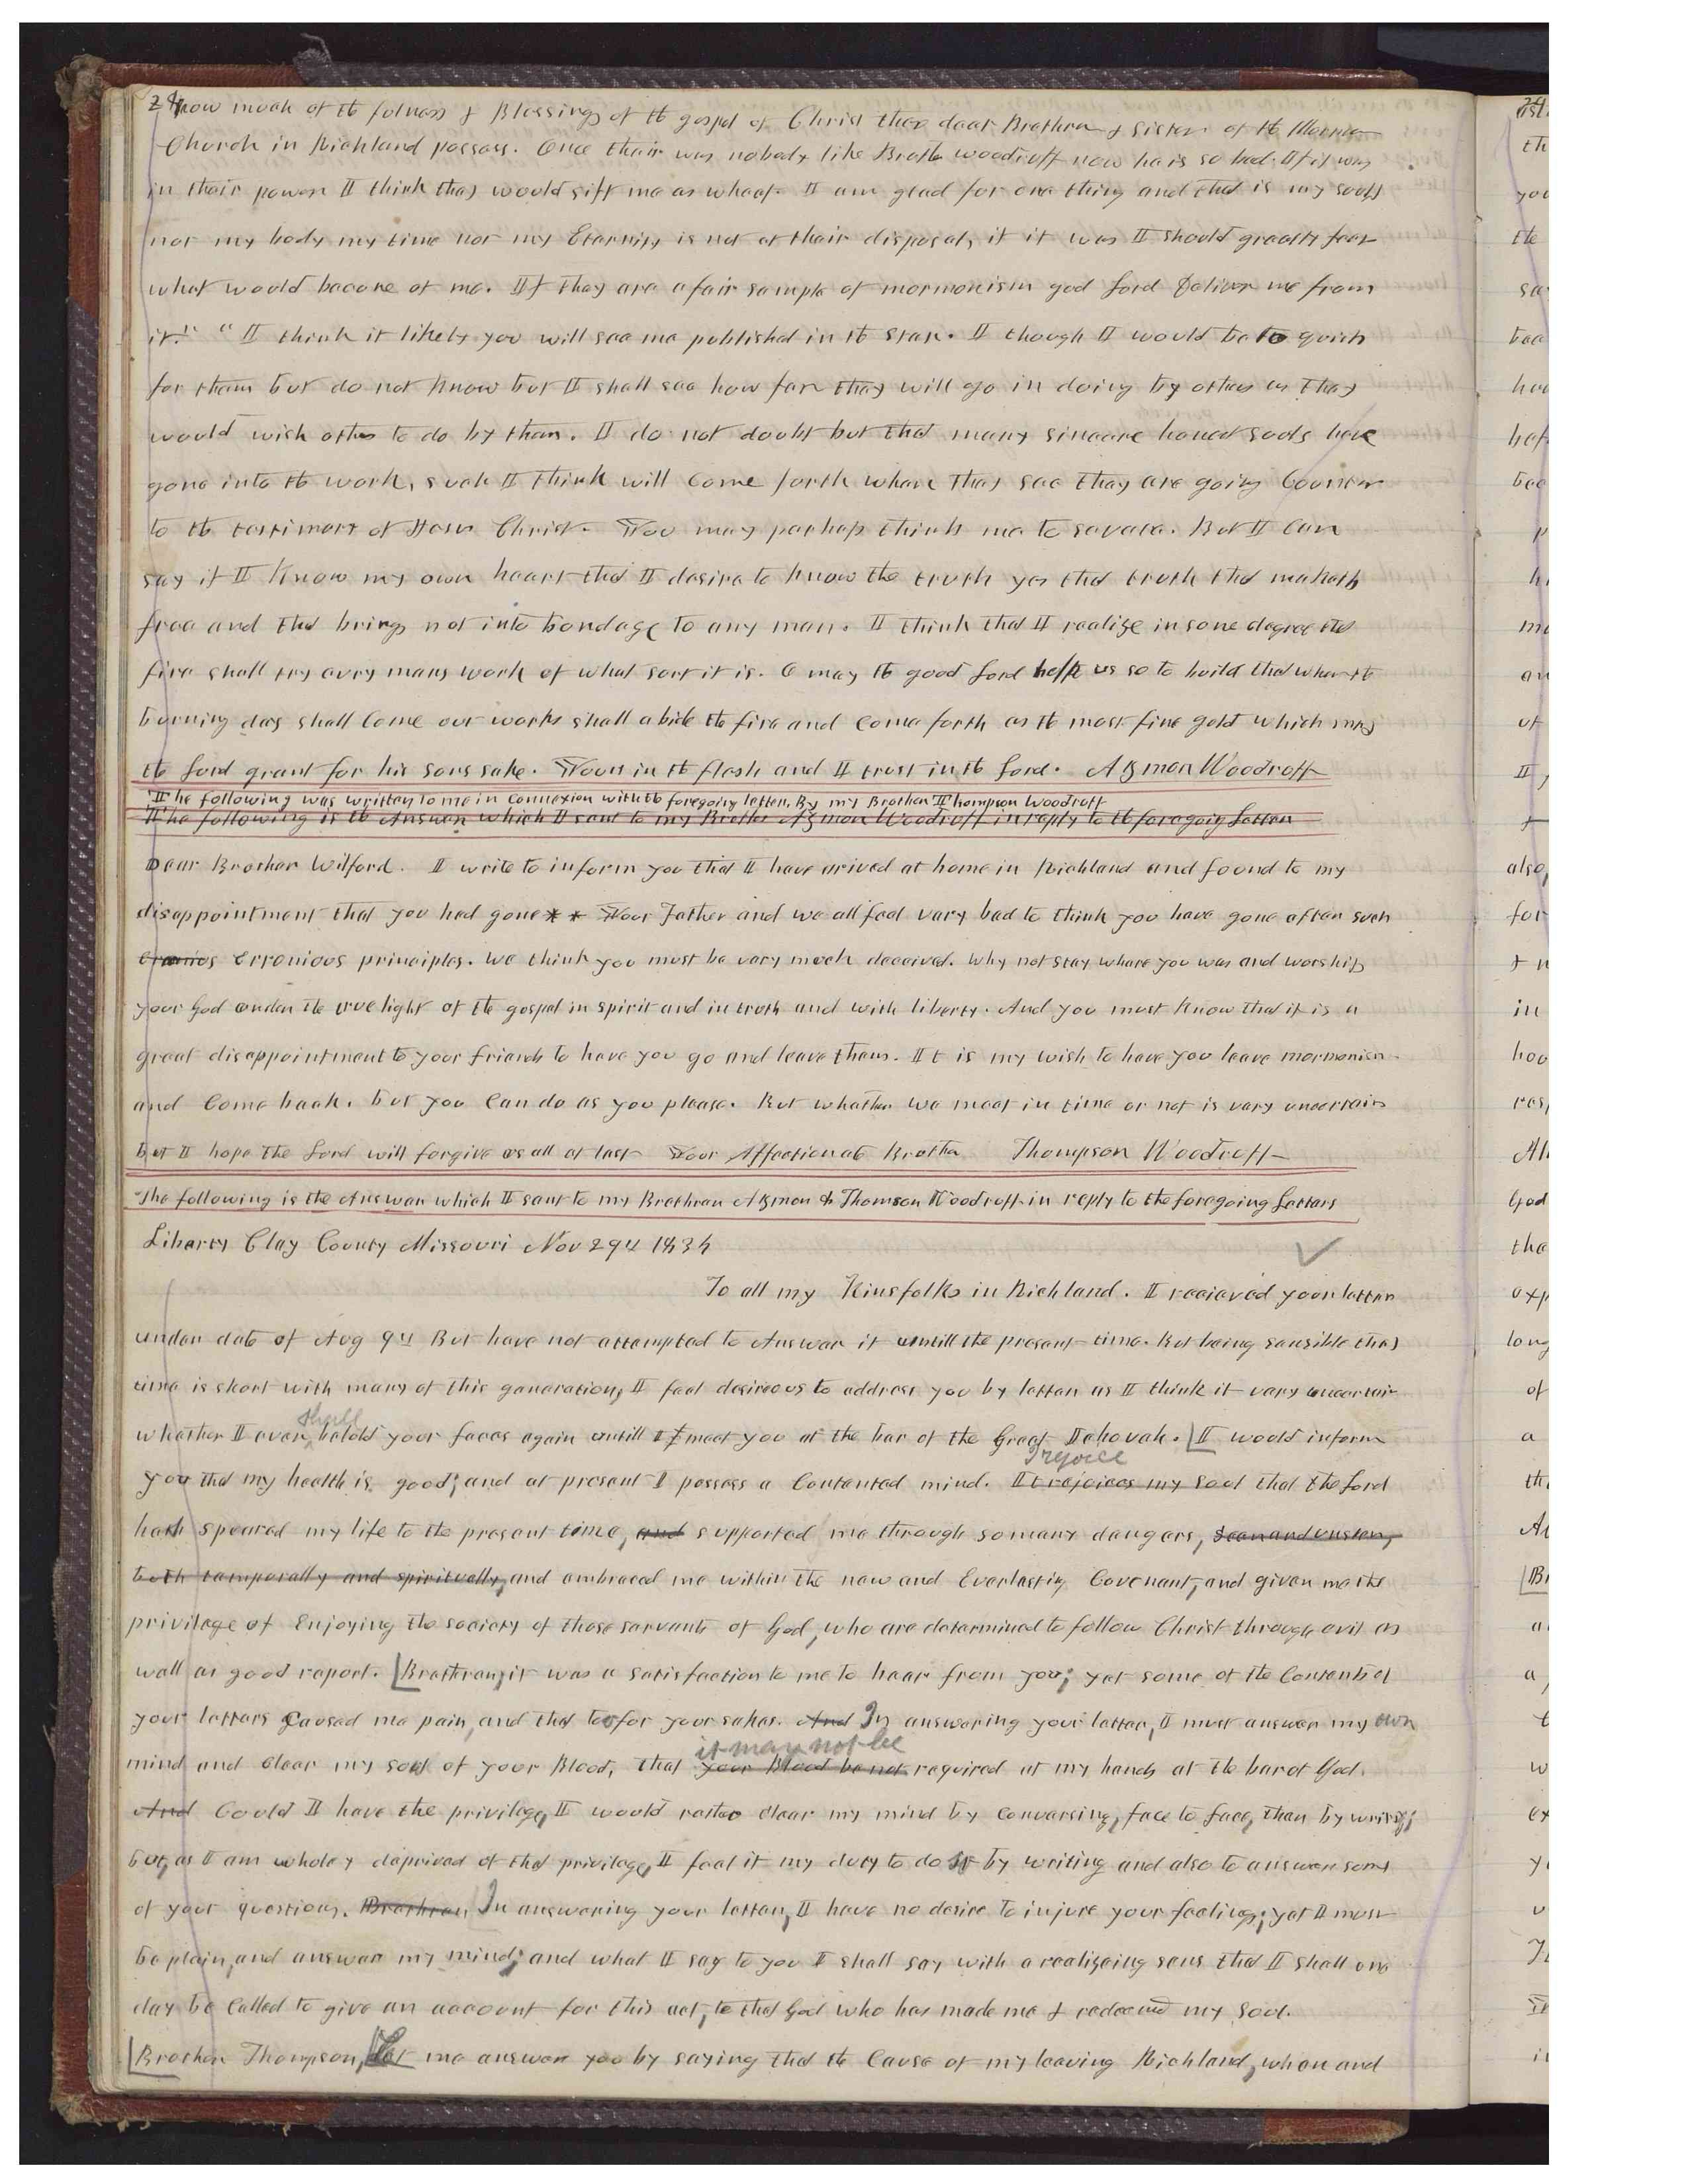 24
how much of the fulness & Blessings of the gospel of Christ thes dear Brethren & Sisters of the Mormon
Church in Richland possess. Once their was nobody like Brother Woodruff now he is so bad. If it was
in their power I think they would sift me as wheat. I am glad for one thing and that is my soul
nor my body my time nor my Eternity is not at their disposal, if it was I should greatly fear
what would become of me. If they are a fair sample of mormonism god Lord Deliver me from
it." "I think it likely you will see me published in the Star. I though I would be to quick
for them but do not know but I shall see how far they will go in doing by others as they
would wish others to do by them. I do not doubt but that many sincere honest souls have
gone into the work, such I think will Come forth when they see they are going Counter
to the testimony of Jesus Christ. You may perhaps think me to severe. But I Can
say if I Know my own heart that I desire to know the truth yes that truth that maketh
free and that brings not into bondage to any man. I think that I realize in some degree that
fire shall try evry mans work of what sort it is. O may the good Lord help us so to build that when the
burning day shall Come our works shall abide the fire and Come forth as the most fine gold which may
the Lord grant for his sons sake. Yours in the flesh and I trust in the Lord. Azmon Woodruff
The following was written to me in Connexion with the foregoing letter, By my Brother Thompson Woodruff
The following is the Answer which I sent to my Brother Azmon Woodruff in reply to the foregoing Letter
Dear Brother Wilford. I write to inform you that I have arived at home in Richland and found to my
disappointment that you had gone ** Your Father and we all feel very bad to think you have gone after such
erronios erronious principles. We think you must be very much deceived. Why not stay where you was and worship
your God under the true light of the gospel in spirit and in truth and with liberty. And you must Know that it is a
great disappointment to your friends to have you go and leave them. It is my wish to have you leave mormonism
and Come back. but you Can do as you please. But whether we meet in time or not is very uncertain
but I hope the Lord will forgive us all at last Your Affectionate Brother Thompson Woodruff
The following is the Answer which I sent to my Brethren Azmon & Thomson Woodruff in reply to the foregoing Letters
Liberty Clay County Missouri Nov 29th 1834
To all my Kinsfolks in Richland. I recieved your letter
under date of Aug 9th But have not attempted to Answer it untill the present time. But being sensible that
time is short with many of this generation, I feel desireous to address you by letter as I think it very uncertain
shall
whether I ever behold your faces again untill I meet you at the bar of the Great Jehovah. I would inform
I rejoice
you that my health is good; and at present I possess a Contented mind. It rejoices my soul that the Lord
hath speared my life to the present time, and supported me through so many dangers, seen and unseen,
both temporally and spiritually, and embraced me within the new and Everlasting Covenant, and given me the
privilege of Enjoying the society of those servants of God, who are determined to follow Christ through evil as
well as good report. Brethren, it was a satisfaction to me to hear from you; yet some of the Contents of
your letters Caused me pain, and that too for your sakes. And In answering your letter, I must answer my own
it may not be
mind and clear my soul of your Blood, that your Blood be not required at my hands at the bar of God.
And Could I have the privilege, I would rather clear my mind by Conversing, face to face, than by writing;
but, as I am wholey deprived of that privilege, I feel it my duty to do so by writing and also to answer some
of your questions. Brethren In answering your letter, I have no desire to injure your feelings; yet I must
be plain, and answer my mind; and what I say to you I shall say with a realizeing sens that I shall one
day be Called to give an account for this act, to that God who has made me & redeemd my soul.
Brother Thompson, Let me answer you by saying that the Cause of my leaving Richland, when and